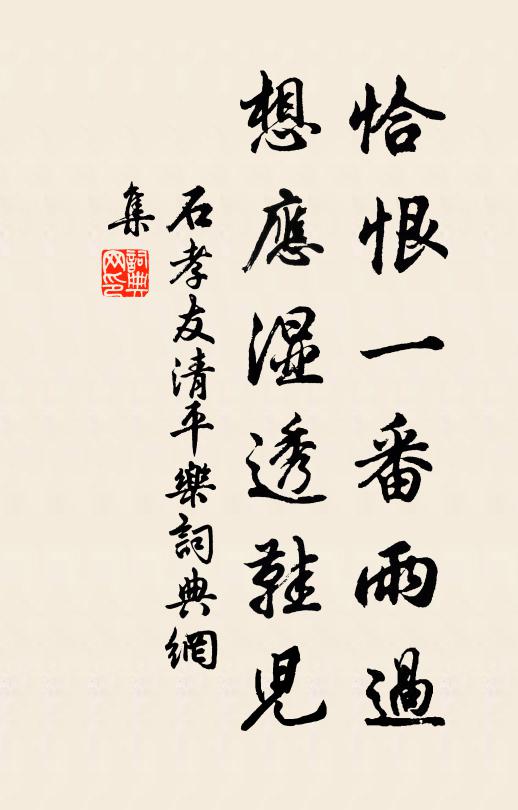 恰恨一番雨過
想應濕透鞋兒
石孝友清平樂詞典網
集
詞典
网印